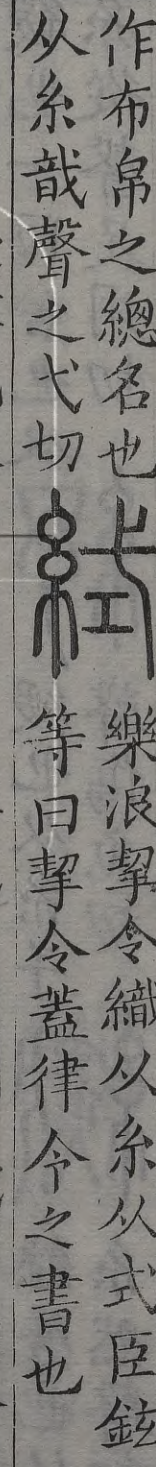 作布帛之總名也
从糸戠聲之弋切
𥿮
樂浪挈令織从糸从式臣鉉
等曰挈令蓋律令之書也